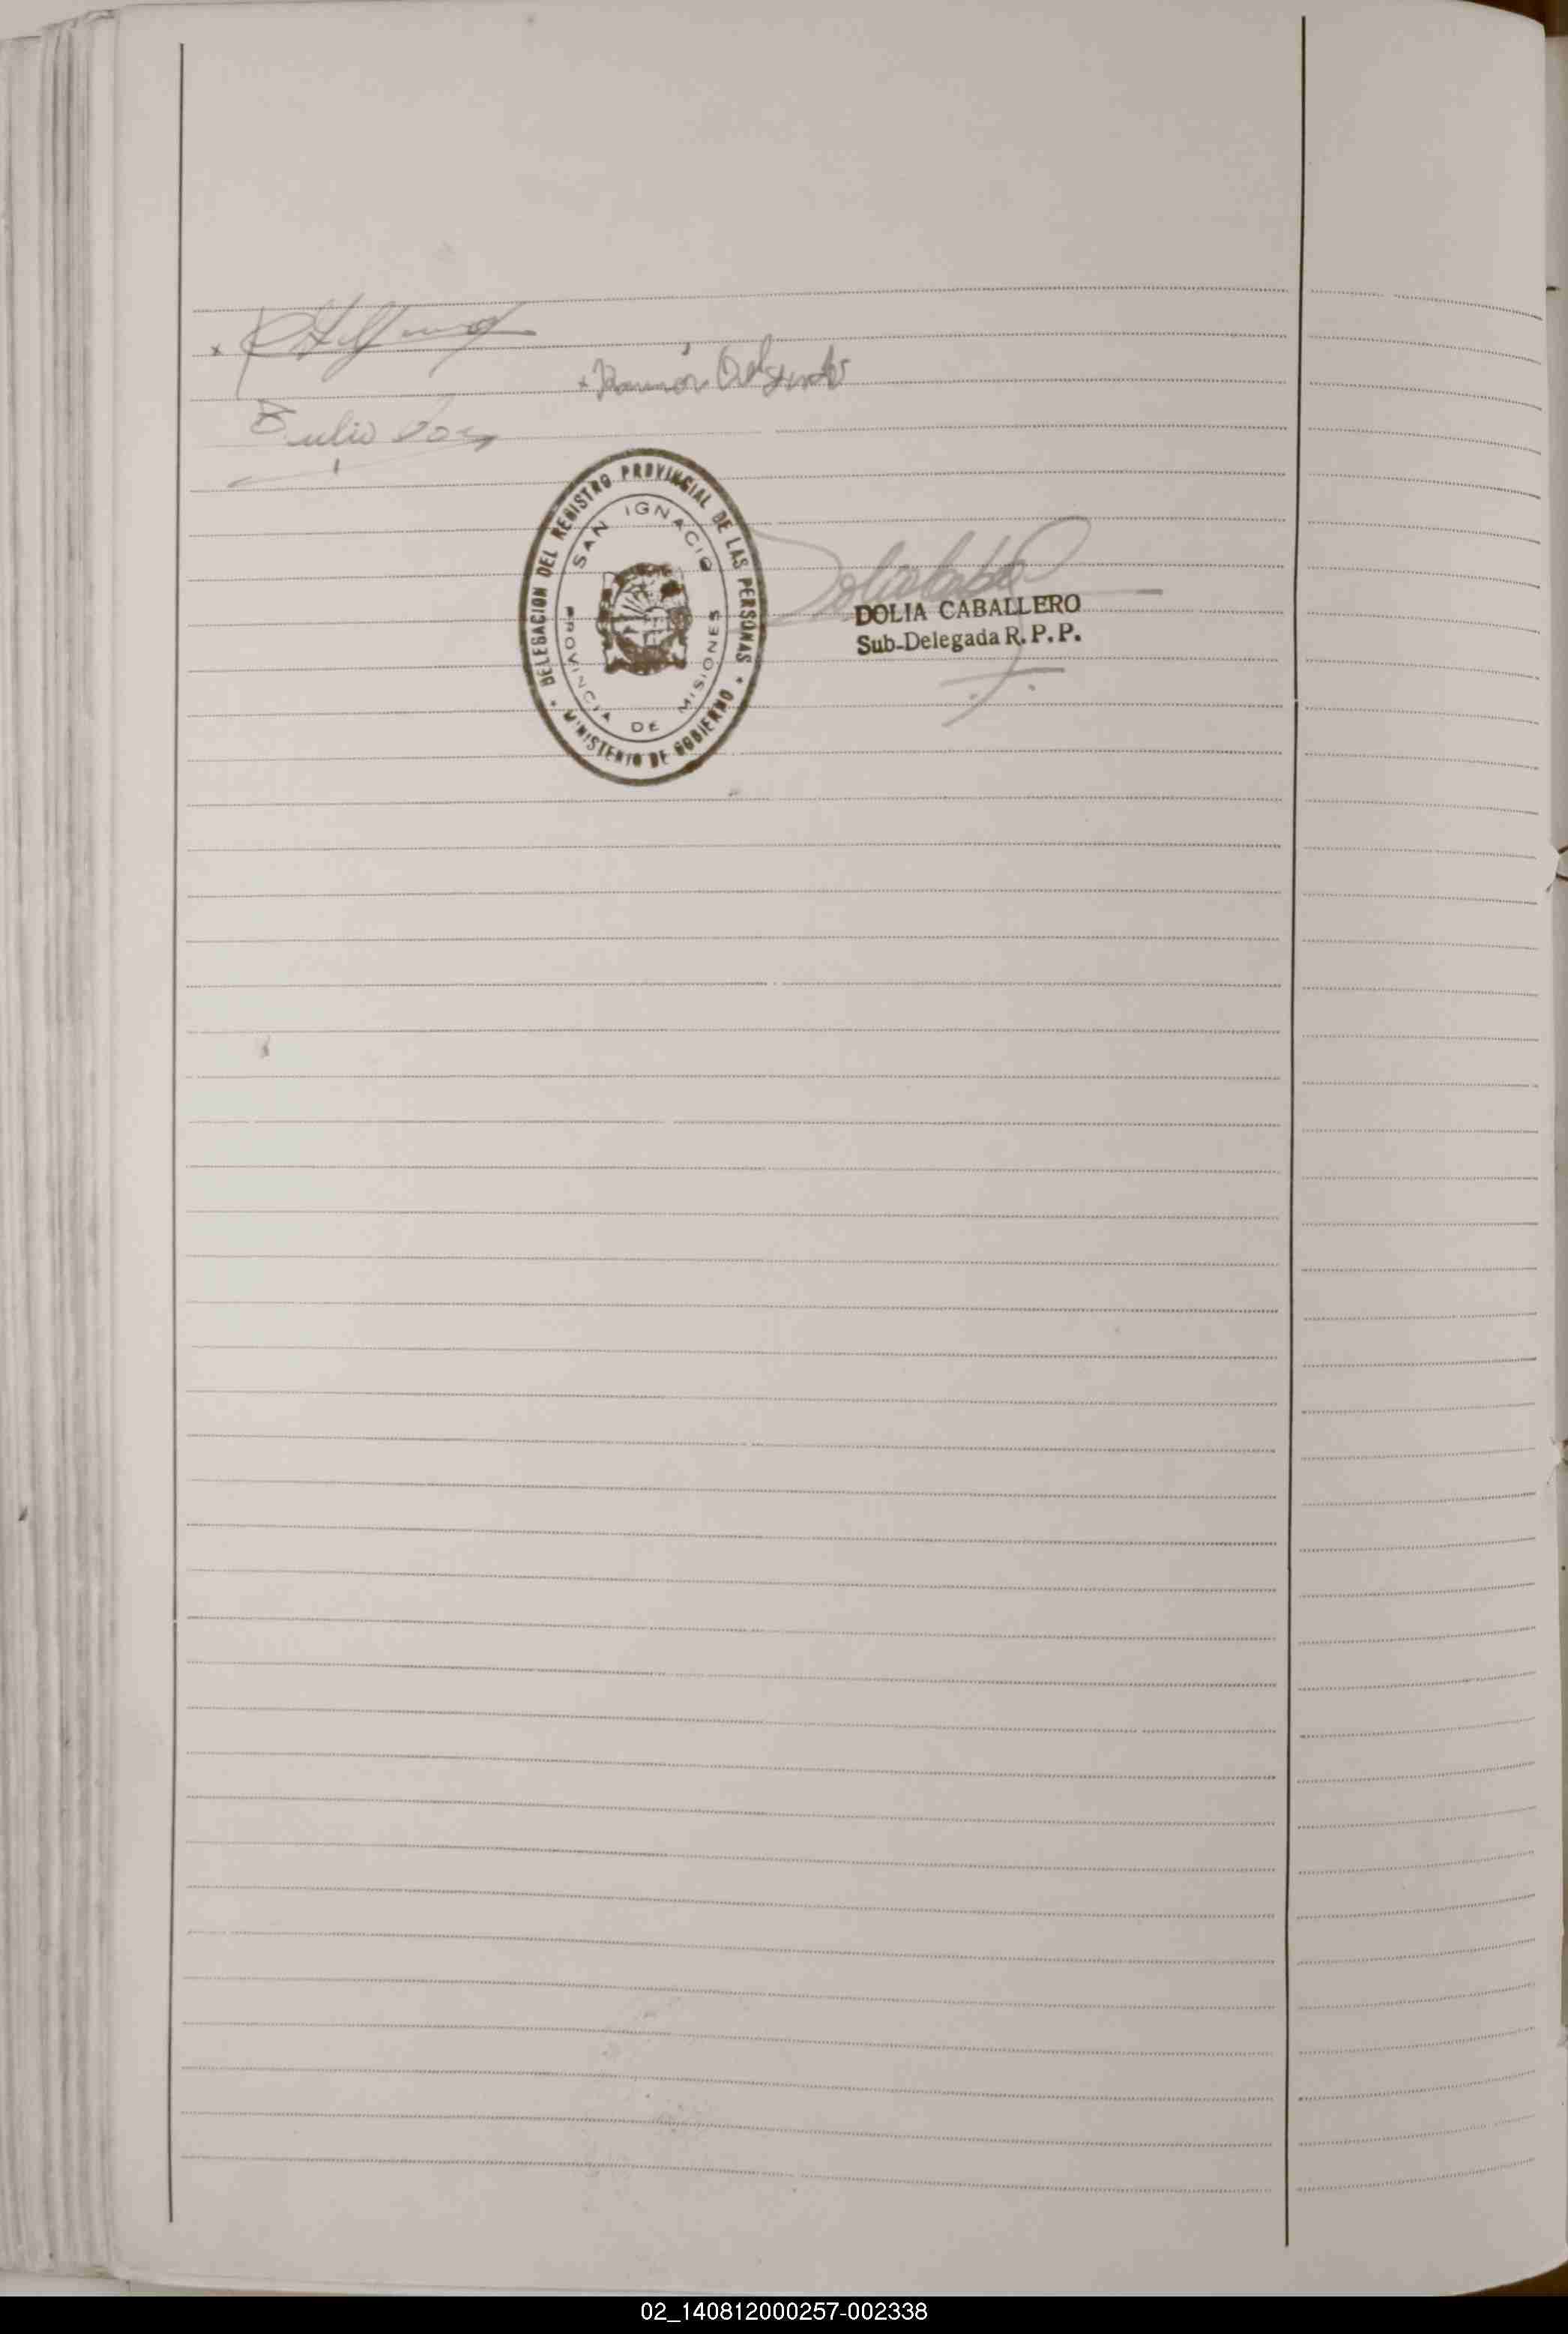 Ramón
Julio
DELEGACION DEL REGISTRO PROVINCIAL DE LAS PERSONAS
SAN IGNACIO
PROVINCIA DE MISIONES
MINISTERIO DE GOBIERNO
DOLIA CABALLERO
Sub-Delegada R. P. P.
02_140812000257-002338